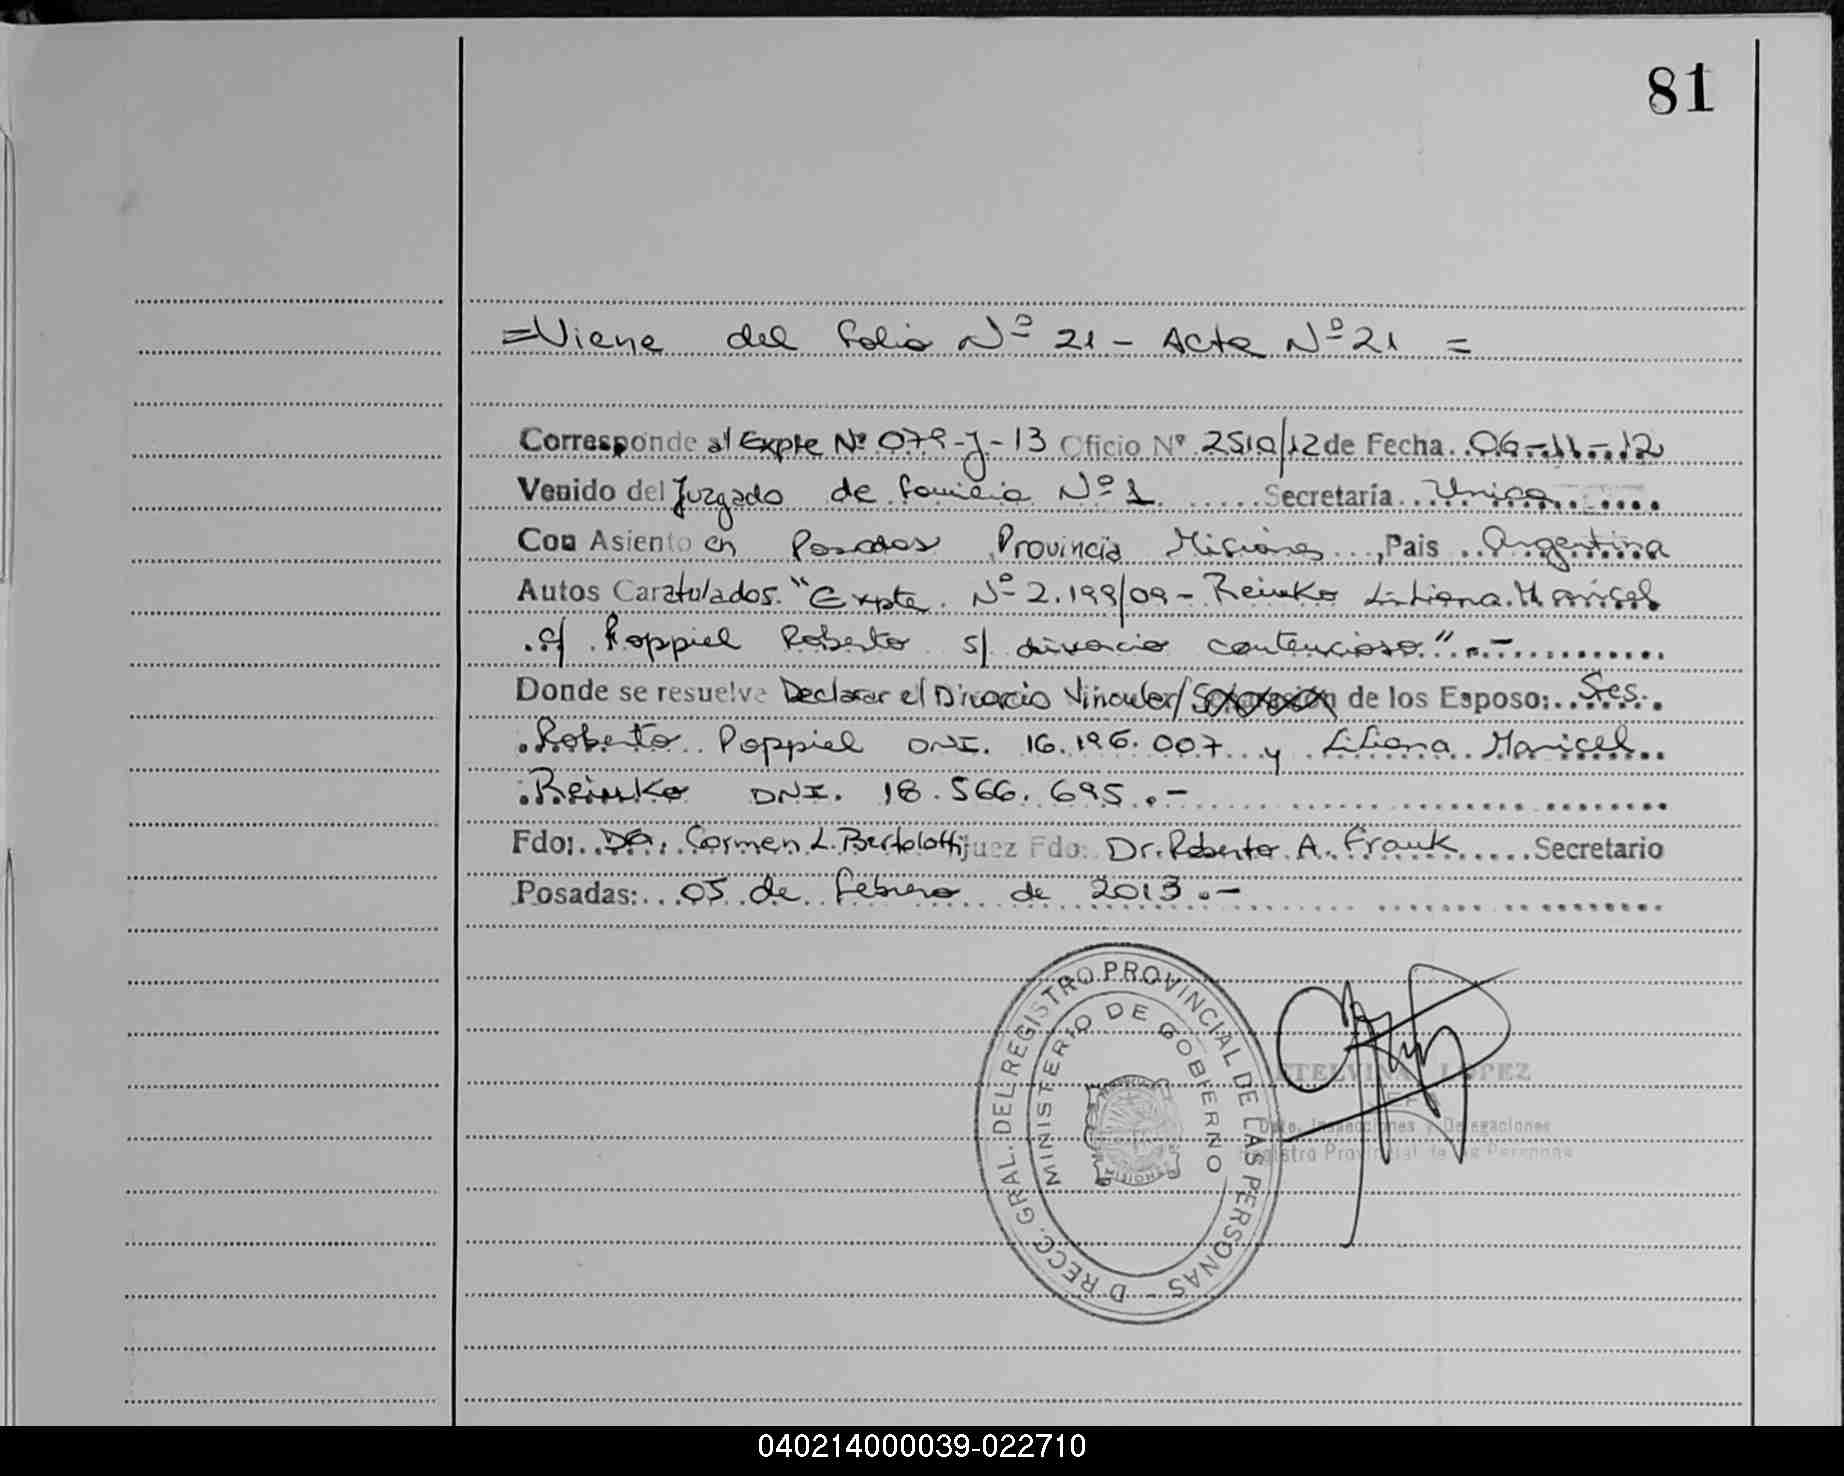 81
=Viene del folio Nº 21 - Acta Nº 21 =
Corresponde al Expte Nº 079-J-13 Oficio Nº 2510/12 de Fecha 06-11-12
Venido del Juzgado de familia Nº 1 Secretaría Unica
Con Asiento en Posadas Provincia Misiones, Pais Argentina
Autos Caratulados "Expte. Nº 2.199/09 - Reinko Liliana Maricel
c/ Poppiel Roberto s/ divorcio contencioso".-
Donde se resuelve Declarar el Divorcio Vincular/Separación de los Esposo: Sres.
Roberto Poppiel DNI. 16.196.007 y Liliana Maricel
Reinko DNI. 18.566.695.-
Fdo: Dra. Carmen L. Bertolotti juez Fdo: Dr. Roberto A. Frank Secretario
Posadas: 05 de febrero de 2013.-
DIRECC. GRAL. DEL REGISTRO PROVINCIAL DE LAS PERSONAS -
MINISTERIO DE GOBERNO
MISIONES
ETELVINA LOPEZ
JEFE
Dpto. Inspecciones y Delegaciones
Registro Provincial de las Personas
040214000039-022710